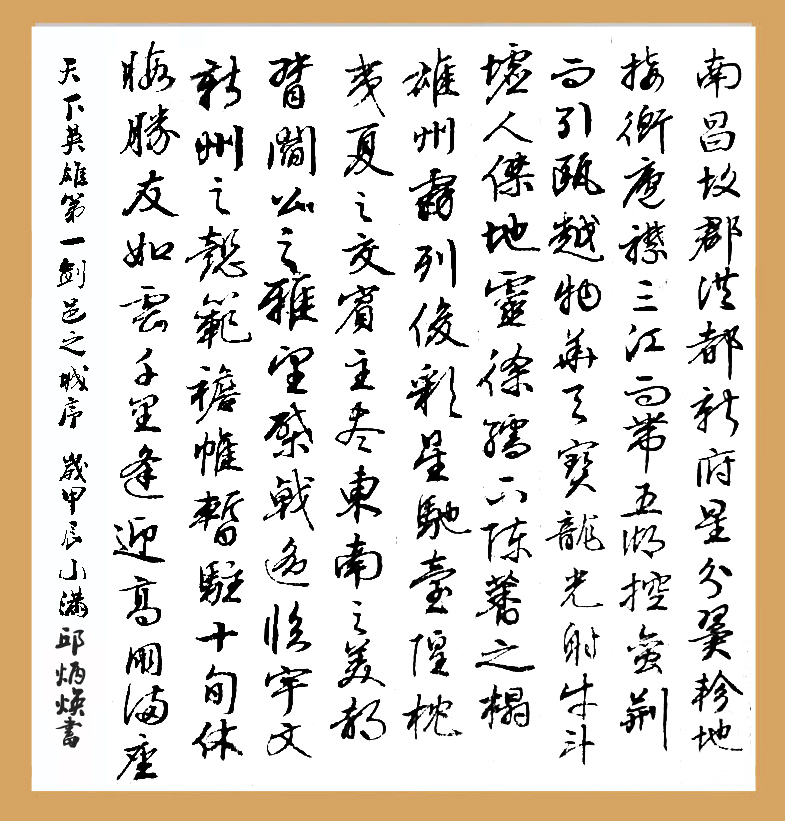 南昌故郡洪都新府星分翼軫地
接衡廬襟三江而帶五湖控蠻荊
而引甌越物華天寶龍光射牛斗
墟人傑地靈徐孺下陳蕃之榻
雄州霧列俊彩星馳臺隍枕
夷夏之交賓主盡東南之美都
督閻公之雅望棨戟遙臨宇文
新州之懿範襜帷暫駐十旬休
暇勝友如雲千里逢迎高朋滿座
天下英雄第一劍邑之城序 歲甲辰小滿邱炳煥書